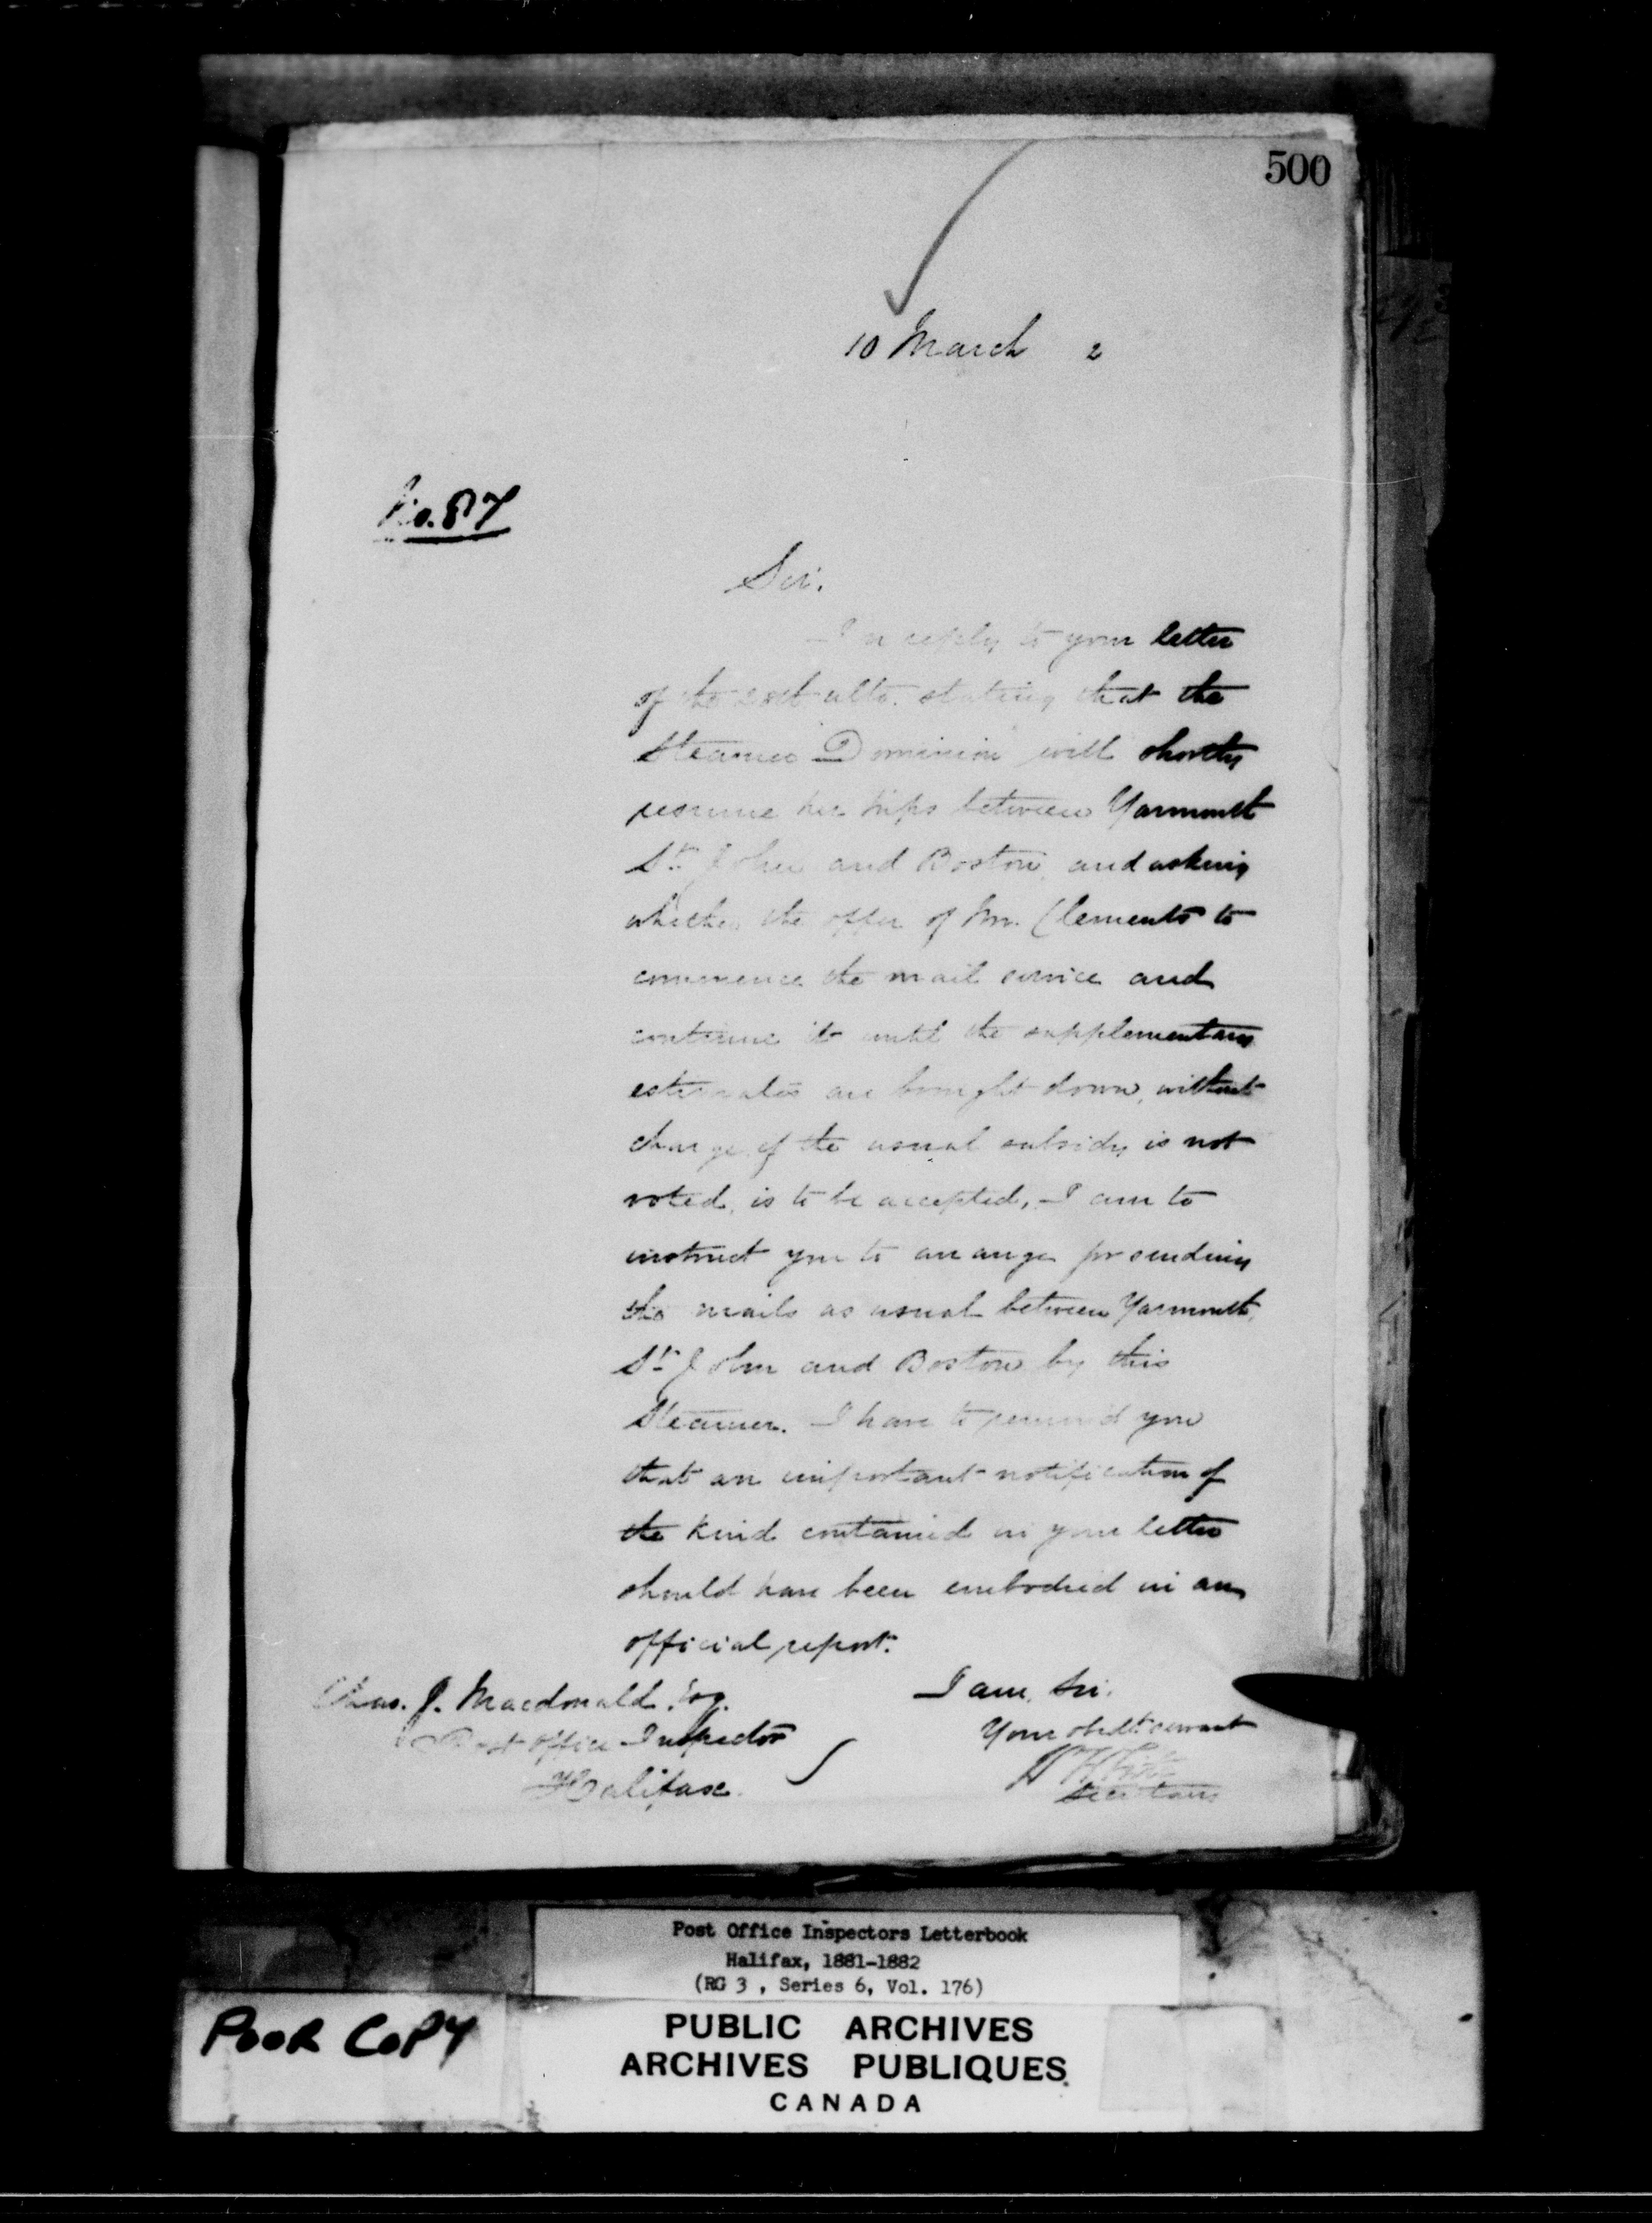 500
10 March 2
No. 87
Sir.
In reply to your letter
of the ulto. stating that the
Steamer "Dominion" will shortly
resume her trips between Yarmouth
St. John and Boston, and asking
whether the offer of Mr. Clements to
commence the mail service and
continue it until the supplementary
estimates are brought down, without
charge if the usual subsidy is not
voted, is to be accepted, I am to
instruct you to arrange for sending
the mails as usual between Yarmouth,
St. John and Boston by this
Steamer. I have to remind you
that an important notification of
the kind contained in your letter
should have been embodied in an
official report.
I am, Sir,
Your obedt. servant
Secretary
Chas. J. Macdonald Esq.
Post Office Inspector
Halifax.
Post Office Inspectors Letterbook
Halifax, 1881-1882
(RG 3 , Series 6, Vol. 176)
POOR COPY
PUBLIC ARCHIVES
ARCHIVES PUBLIQUES
CANADA